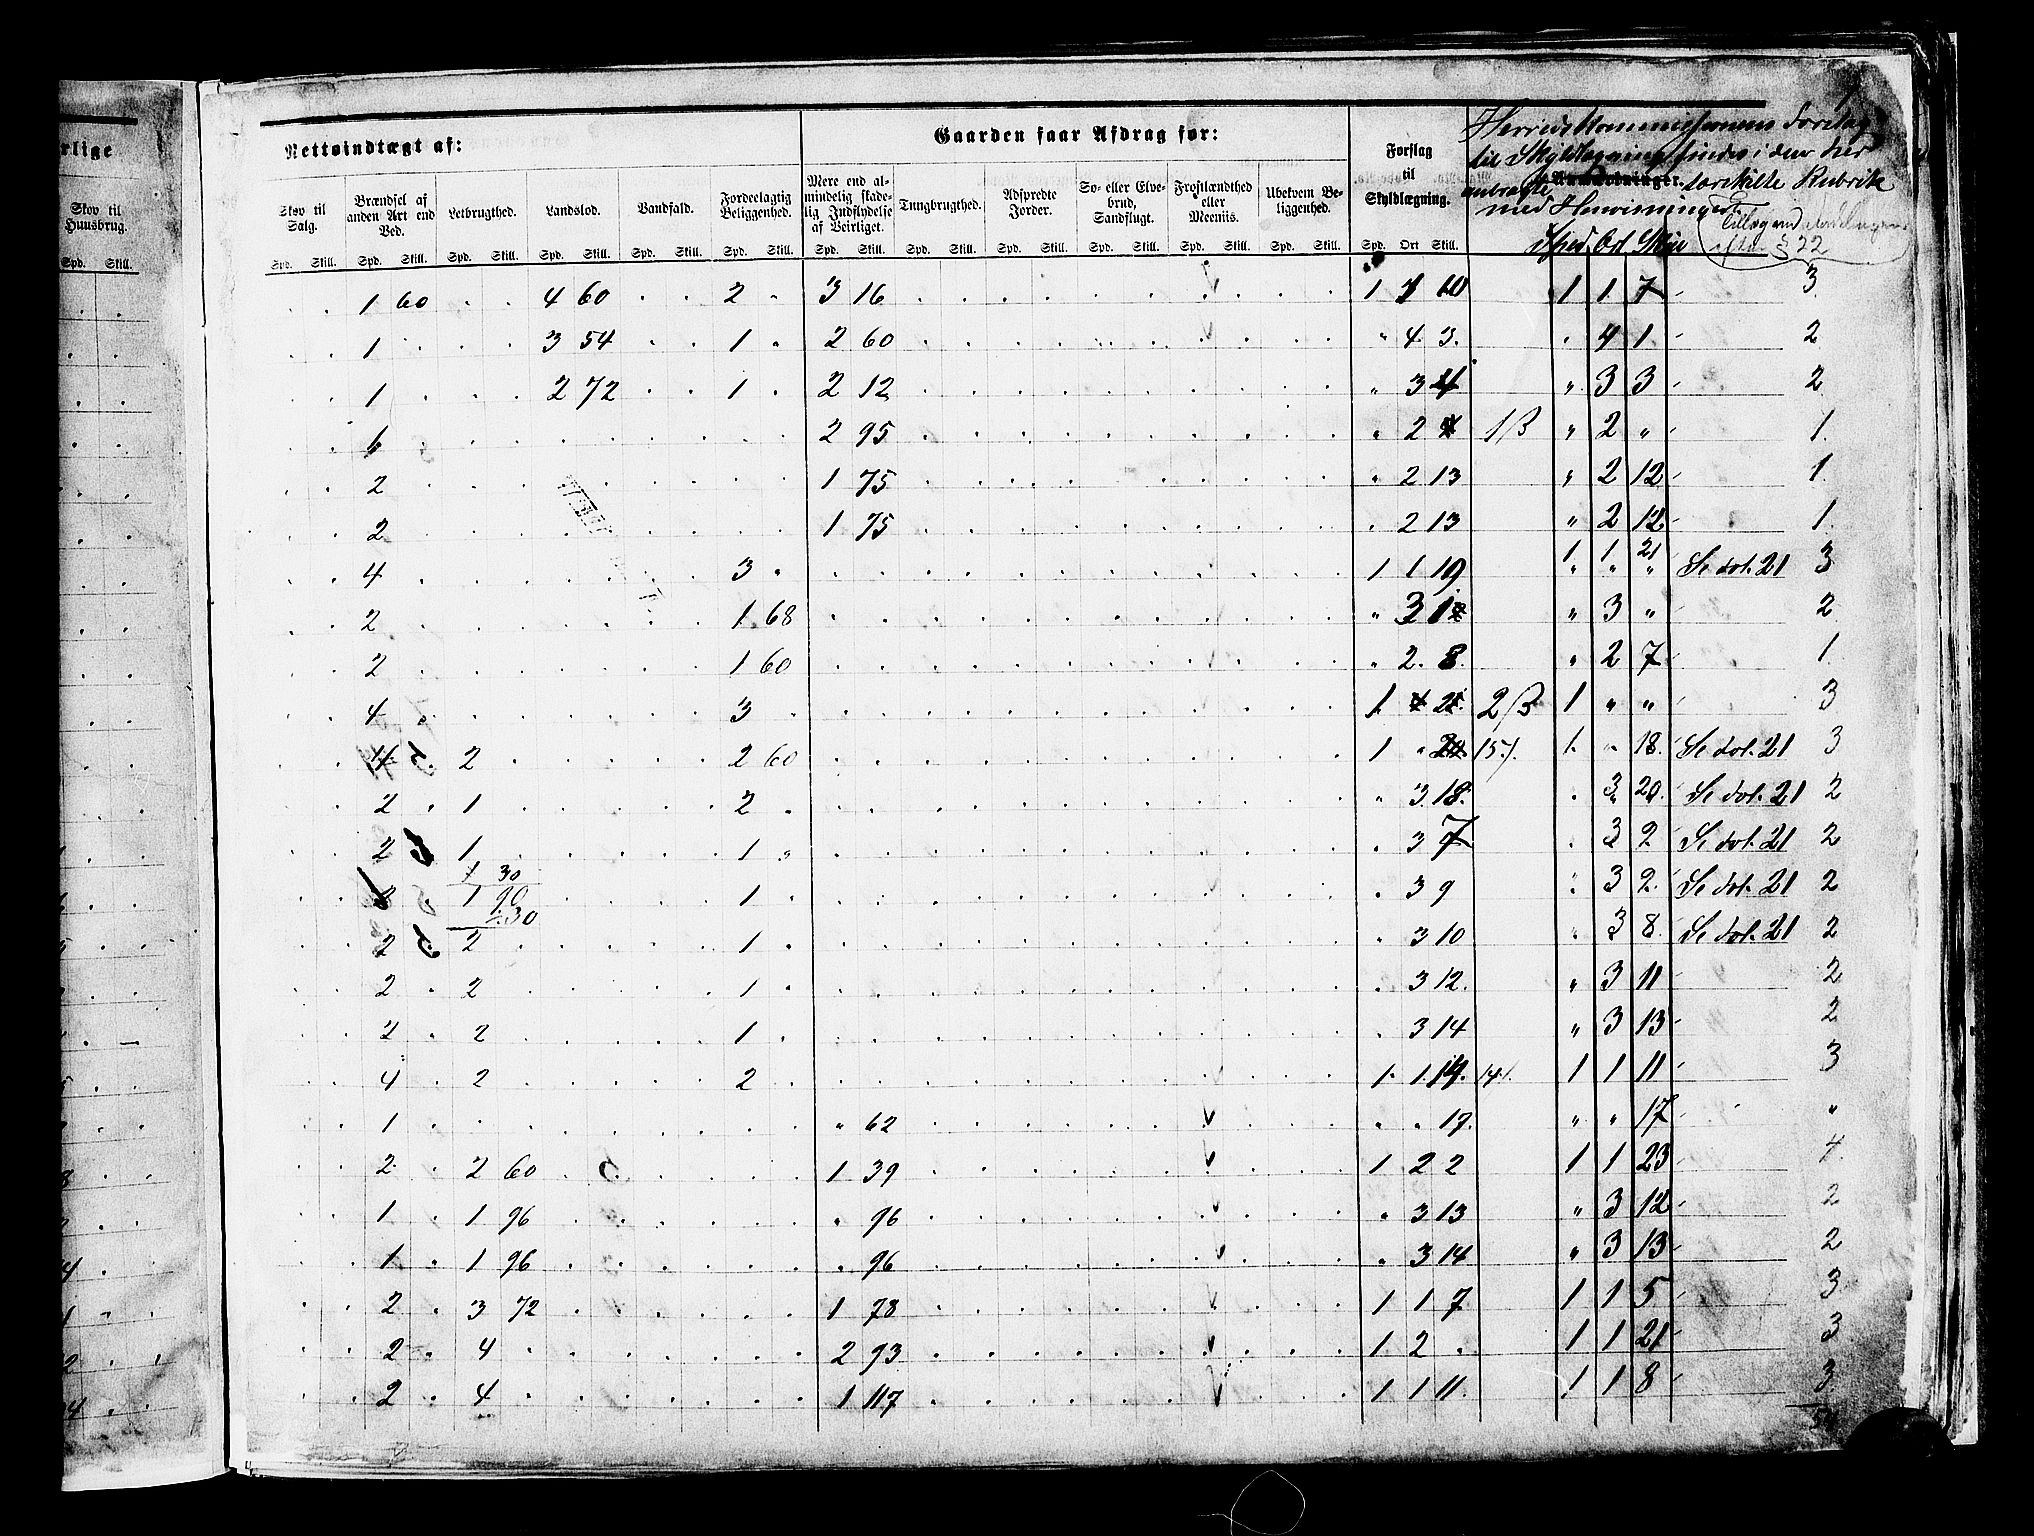 rlige
Skov til
Huusbrug.
Spd. Still.
Nettoindtægt af:
Gaarden faar Afdrag for:
Forslag
til
Skyldlægning.
Herredskommissionens Forslag
til Skyldlægning findes i den her
anbragte særskilte Rubrik
med Henvisninger.
Anmærkninger.
Tillæg ved
efter § 22
Skov til
Salg.
Brændsel af
anden Art end
Ved.
Letbrugthed.
Landslod.
Vandfald.
Fordeelagtig
Beliggenhed.
Mere end al-
mindelig skade-
lig Indflydelse
af Veirliget.
Tungbrugthed.
Adspredte
Jorder.
So- eller Elve-
brud,
Sandflugt.
Frostlændthed
eller
Meeniis.
Ubekvem Be-
liggenhed.
Spd. Still. Spd. Still. Spd. Still. Spd. Still. Spd. Still. Spd. Still. Spd. Still. Spd. Still. Spd. Still. Spd. Still. Spd. Still. Spd. Still. Spd. Ort Still. Sped. Ort Skill
1 60 4 60 2 3 16 1 1 7 3
1 3 54 1 2 60 " 4 3 " 4 1 2
1 2 72 1 2 12 " 3 4 " 3 3 2
6 2 95 " 2 1 ß " 2 " 1
2 1 75 " 2 13 " 2 12 1
2 1 75 " 2 13 " 2 12 1
4 3 1 1 19 1 1 21 Se dok. 21 3
2 1 68 " 3 " 3 " 2
2 1 60 " 2 8 " 2 7 1
4 3 1 2 ß 1 " " 3
5 2 2 60 1 " 15 1 " 18 Se dok. 21 3
2 1 2 " 3 18 " 3 20 Se dok. 21 2
2 5 1 1 " 3 7 " 3 2 Se dok. 21 2
1 30
1 90 1 " 3 9 " 3 2 Se dok. 21 2
÷ 30
2 5 2 1 " 3 10 " 3 8 Se dok. 21 2
2 2 1 " 3 12 " 3 11 2
2 2 1 " 3 14 " 3 13 2
4 2 2 1 1 14 1 1 11 3
1 " 62 " " 17 " " 17 "
2 2 60 1 39 1 2 2 1 1 23 4
1 1 96 " 96 " 3 13 " 3 12 2
1 1 96 " 96 " 3 14 " 3 13 2
2 3 72 1 78 1 1 7 1 1 5 3
2 4 2 93 1 2 " 1 1 21 3
2 4 1 117 1 1 11 1 1 8 3